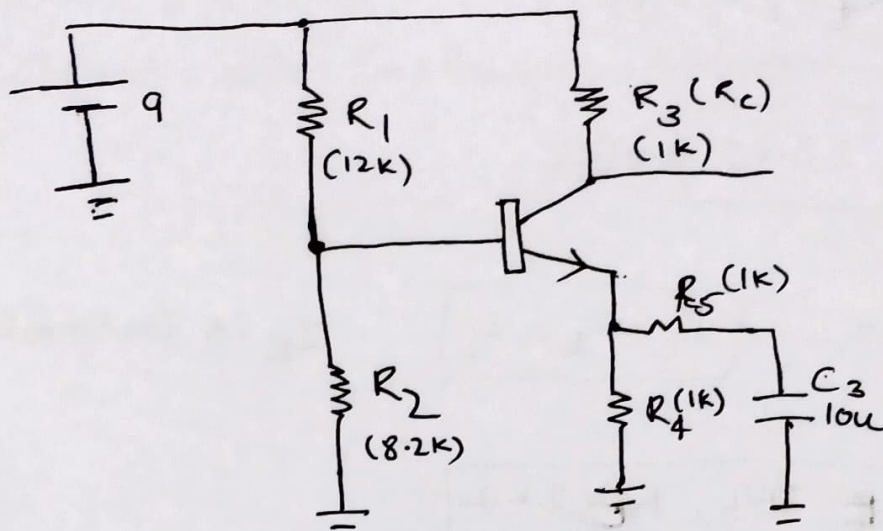 9
R1
(12K)
R3 (Rc)
(1K)
R5 (1K)
R2
(8.2K)
R4 (1K)
C3
10u